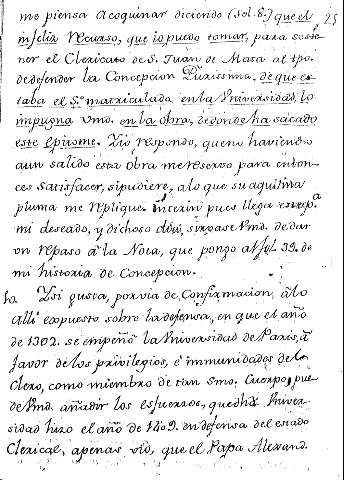 me piensa acoquinar diciendo (fol. 8.) que el 25
infeliz recurso, que io puedo tomar, para soste-
ner el Clericato de S. Juan de Mata al tpo.
de defender la Concepcion Purissima, de que es-
taba el Sto. matriculado en la Universidad, lo
impugna Vmd. en la obra, de donde ha sacado
este epitome. Yo respondo, que no haviendo
aun salido esta obra me reservo para enton-
ces satisfacer, si pudiere, a lo que su aquilina
pluma me replique. Interin pues llega
mi deseado, y dichoso dia, sirvase Vmd. de dar
un repaso à la Nota, que pongo al fol. 39. de
mi historia de Concepcion.
Y si gusta, por via de Confirmacion, à lo
alli expuesto sobre la defensa, en que el año
de 1302. se empeñó la Universidad de Paris, à
favor de los privilegios, è immunidades de lo
Clero, como miembro de tan Smo. Cuerpo, pue-
de Vmd. añadir los esfuerzos, que dha Univer-
sidad hizo el año de 1409. en defensa del estado
Clerical, apenas vió, que el Papa Alexand.